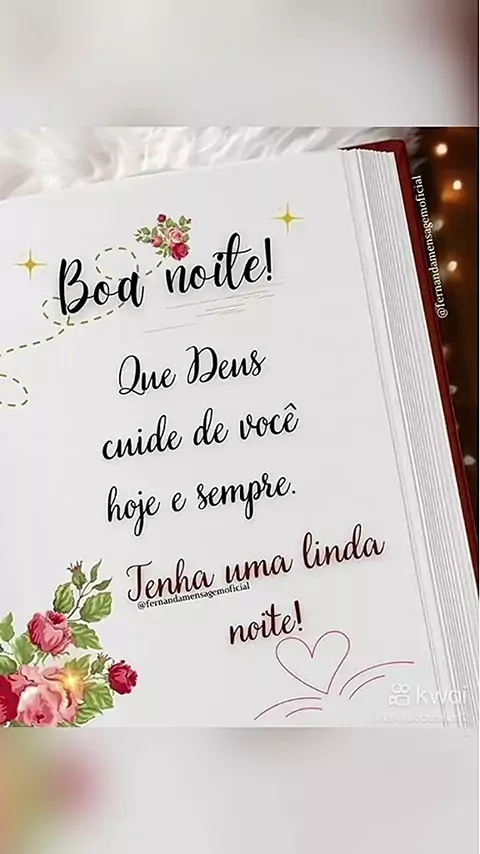 Boa noite!
Que Deus
cuide de você
hoje e sempre.
Tenha uma linda
@fernandamensagemoficial
noite!
@fernandamensagemoficial
kwai